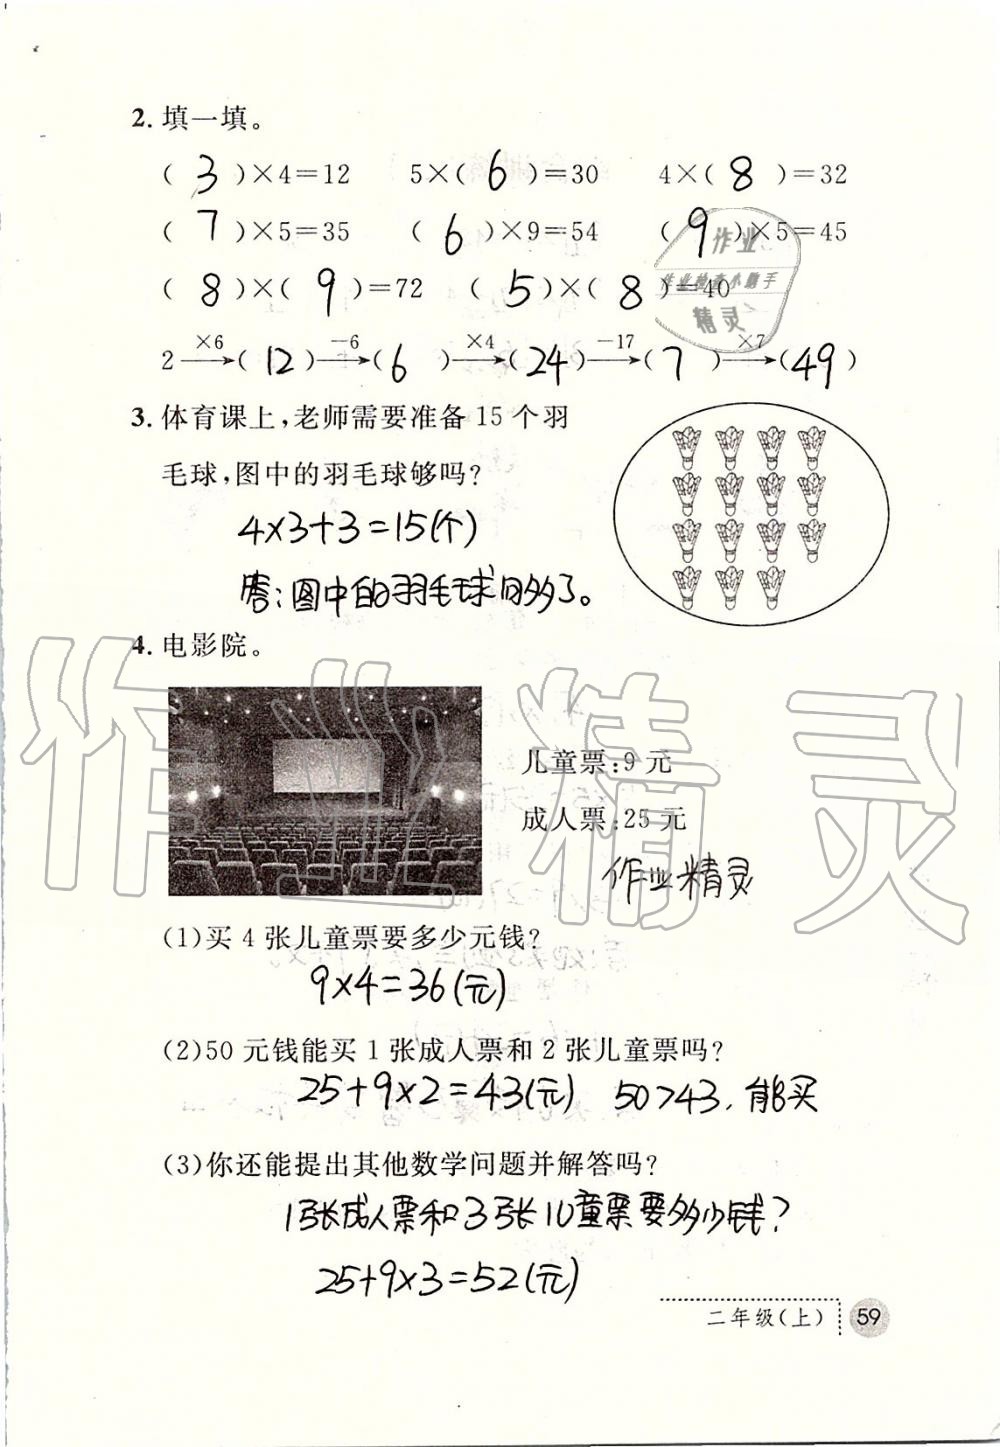 2. 填一填。
( 3 )×4=12 5×( 6 )=30 4×( 8 )=32
( 7 )×5=35 ( 6 )×9=54 ( 9 )×5=45
( 8 )×( 9 )=72 ( 5 )×( 8 )=40
作业
作业检查小助手
精灵
×6 −6 ×4 −17 ×7
2→( 12 )→( 6 )→( 24 )→( 7 )→( 49 )
3. 体育课上,老师需要准备 15 个羽
毛球,图中的羽毛球够吗?
4×3+3=15(个)
答:图中的羽毛球够了。
4. 电影院。
儿童票:9 元
成人票:25 元
作业精灵
作业精灵
(1)买 4 张儿童票要多少元钱?
9×4=36(元)
(2)50 元钱能买 1 张成人票和 2 张儿童票吗?
25+9×2=43(元) 50>43,能买
(3)你还能提出其他数学问题并解答吗?
1张成人票和3张儿童票要多少钱?
25+9×3=52(元)
二年级(上) 59